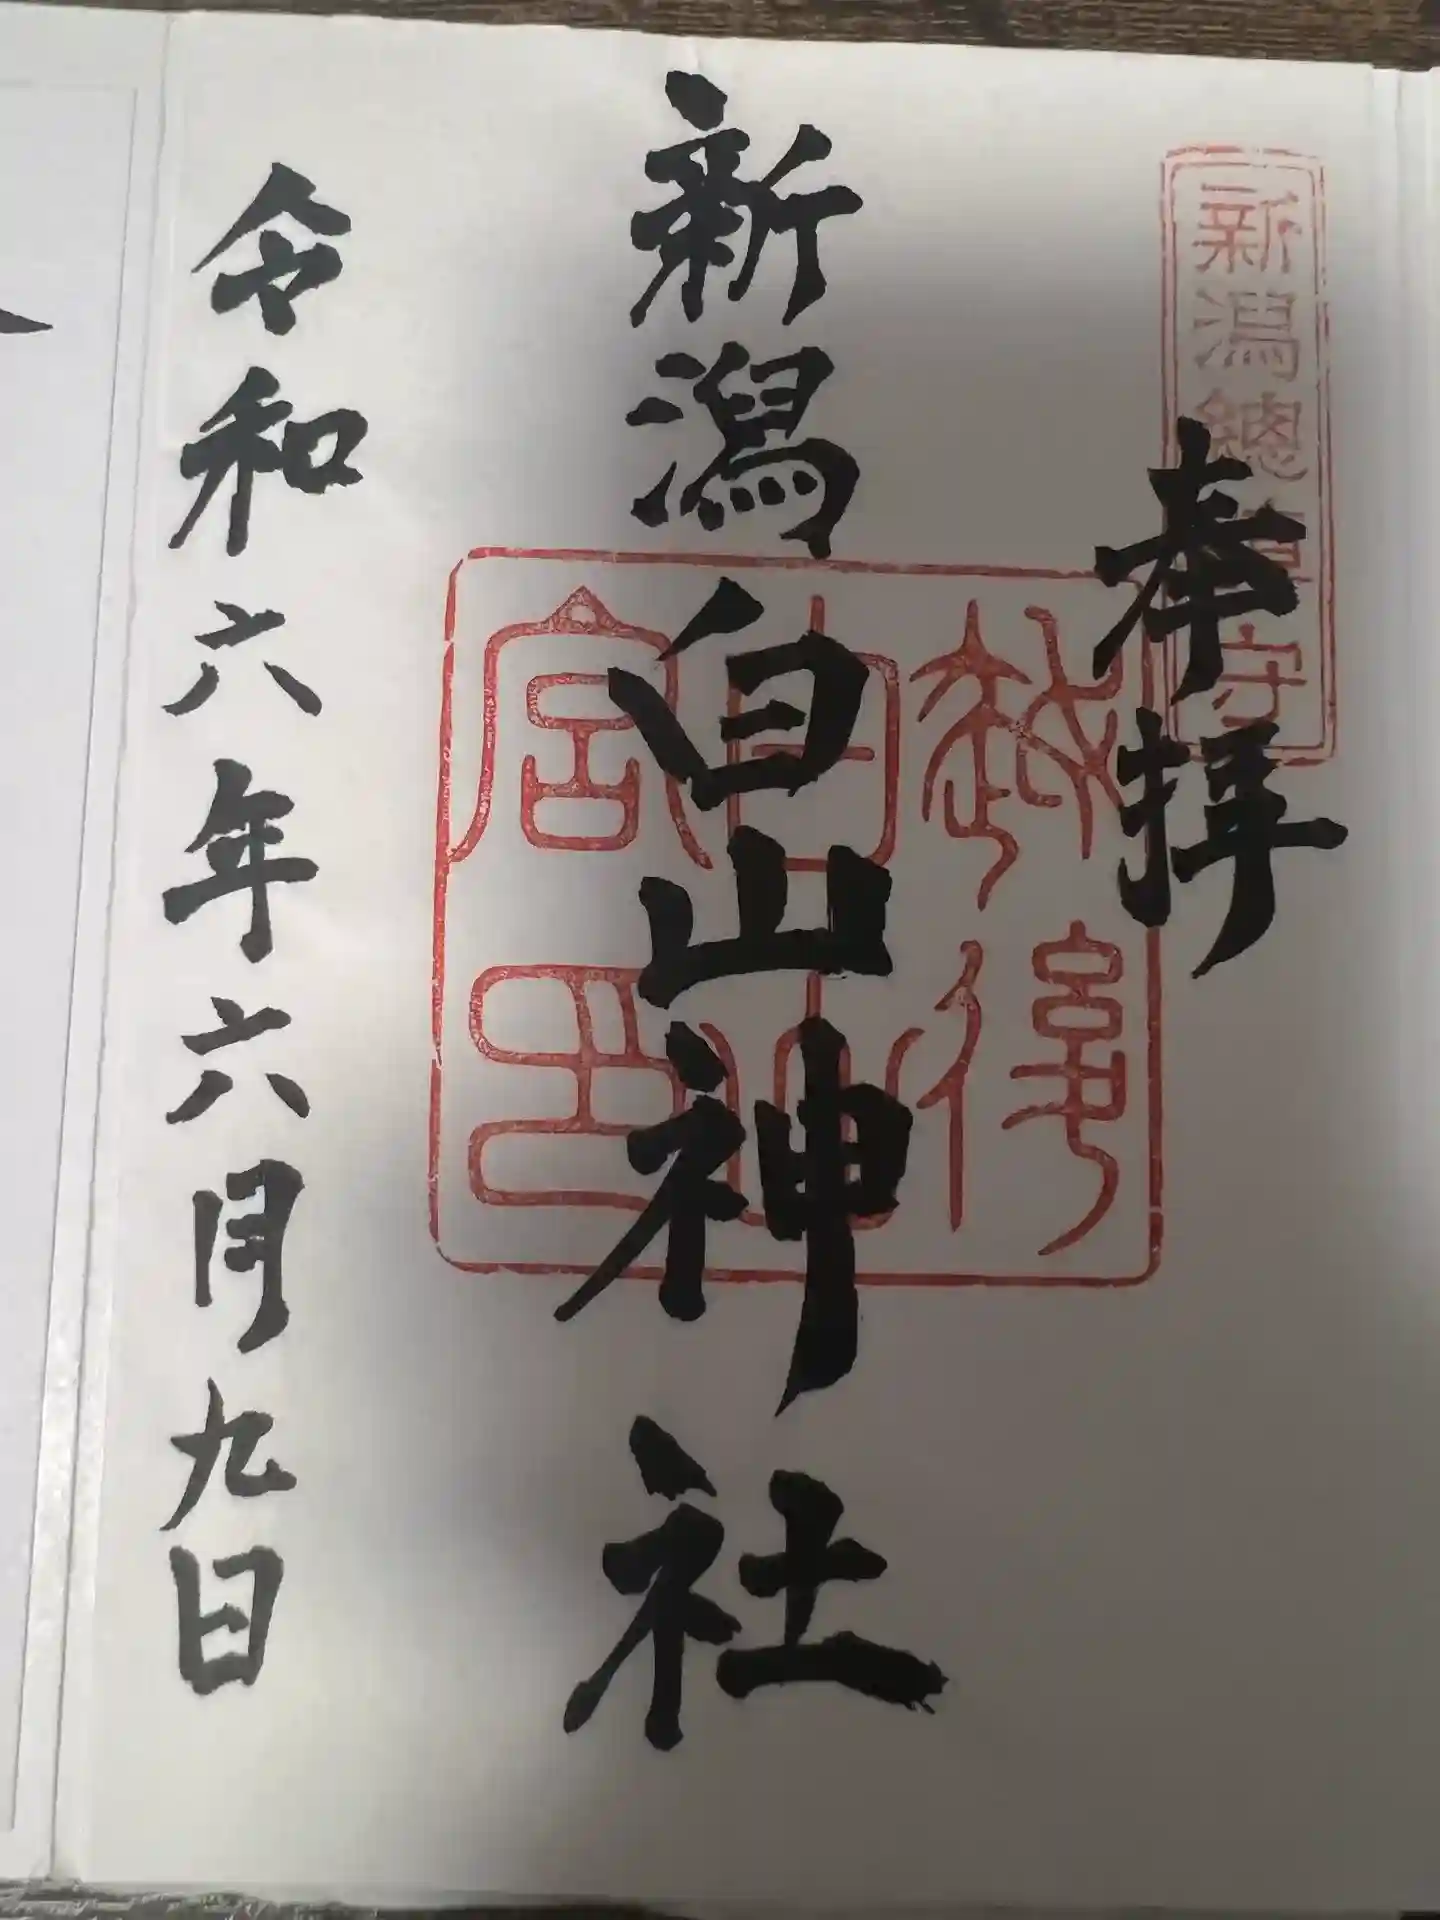 新潟總鎮守
奉拝
越後
白山
宮印
新潟白山神社
令和六年六月九日